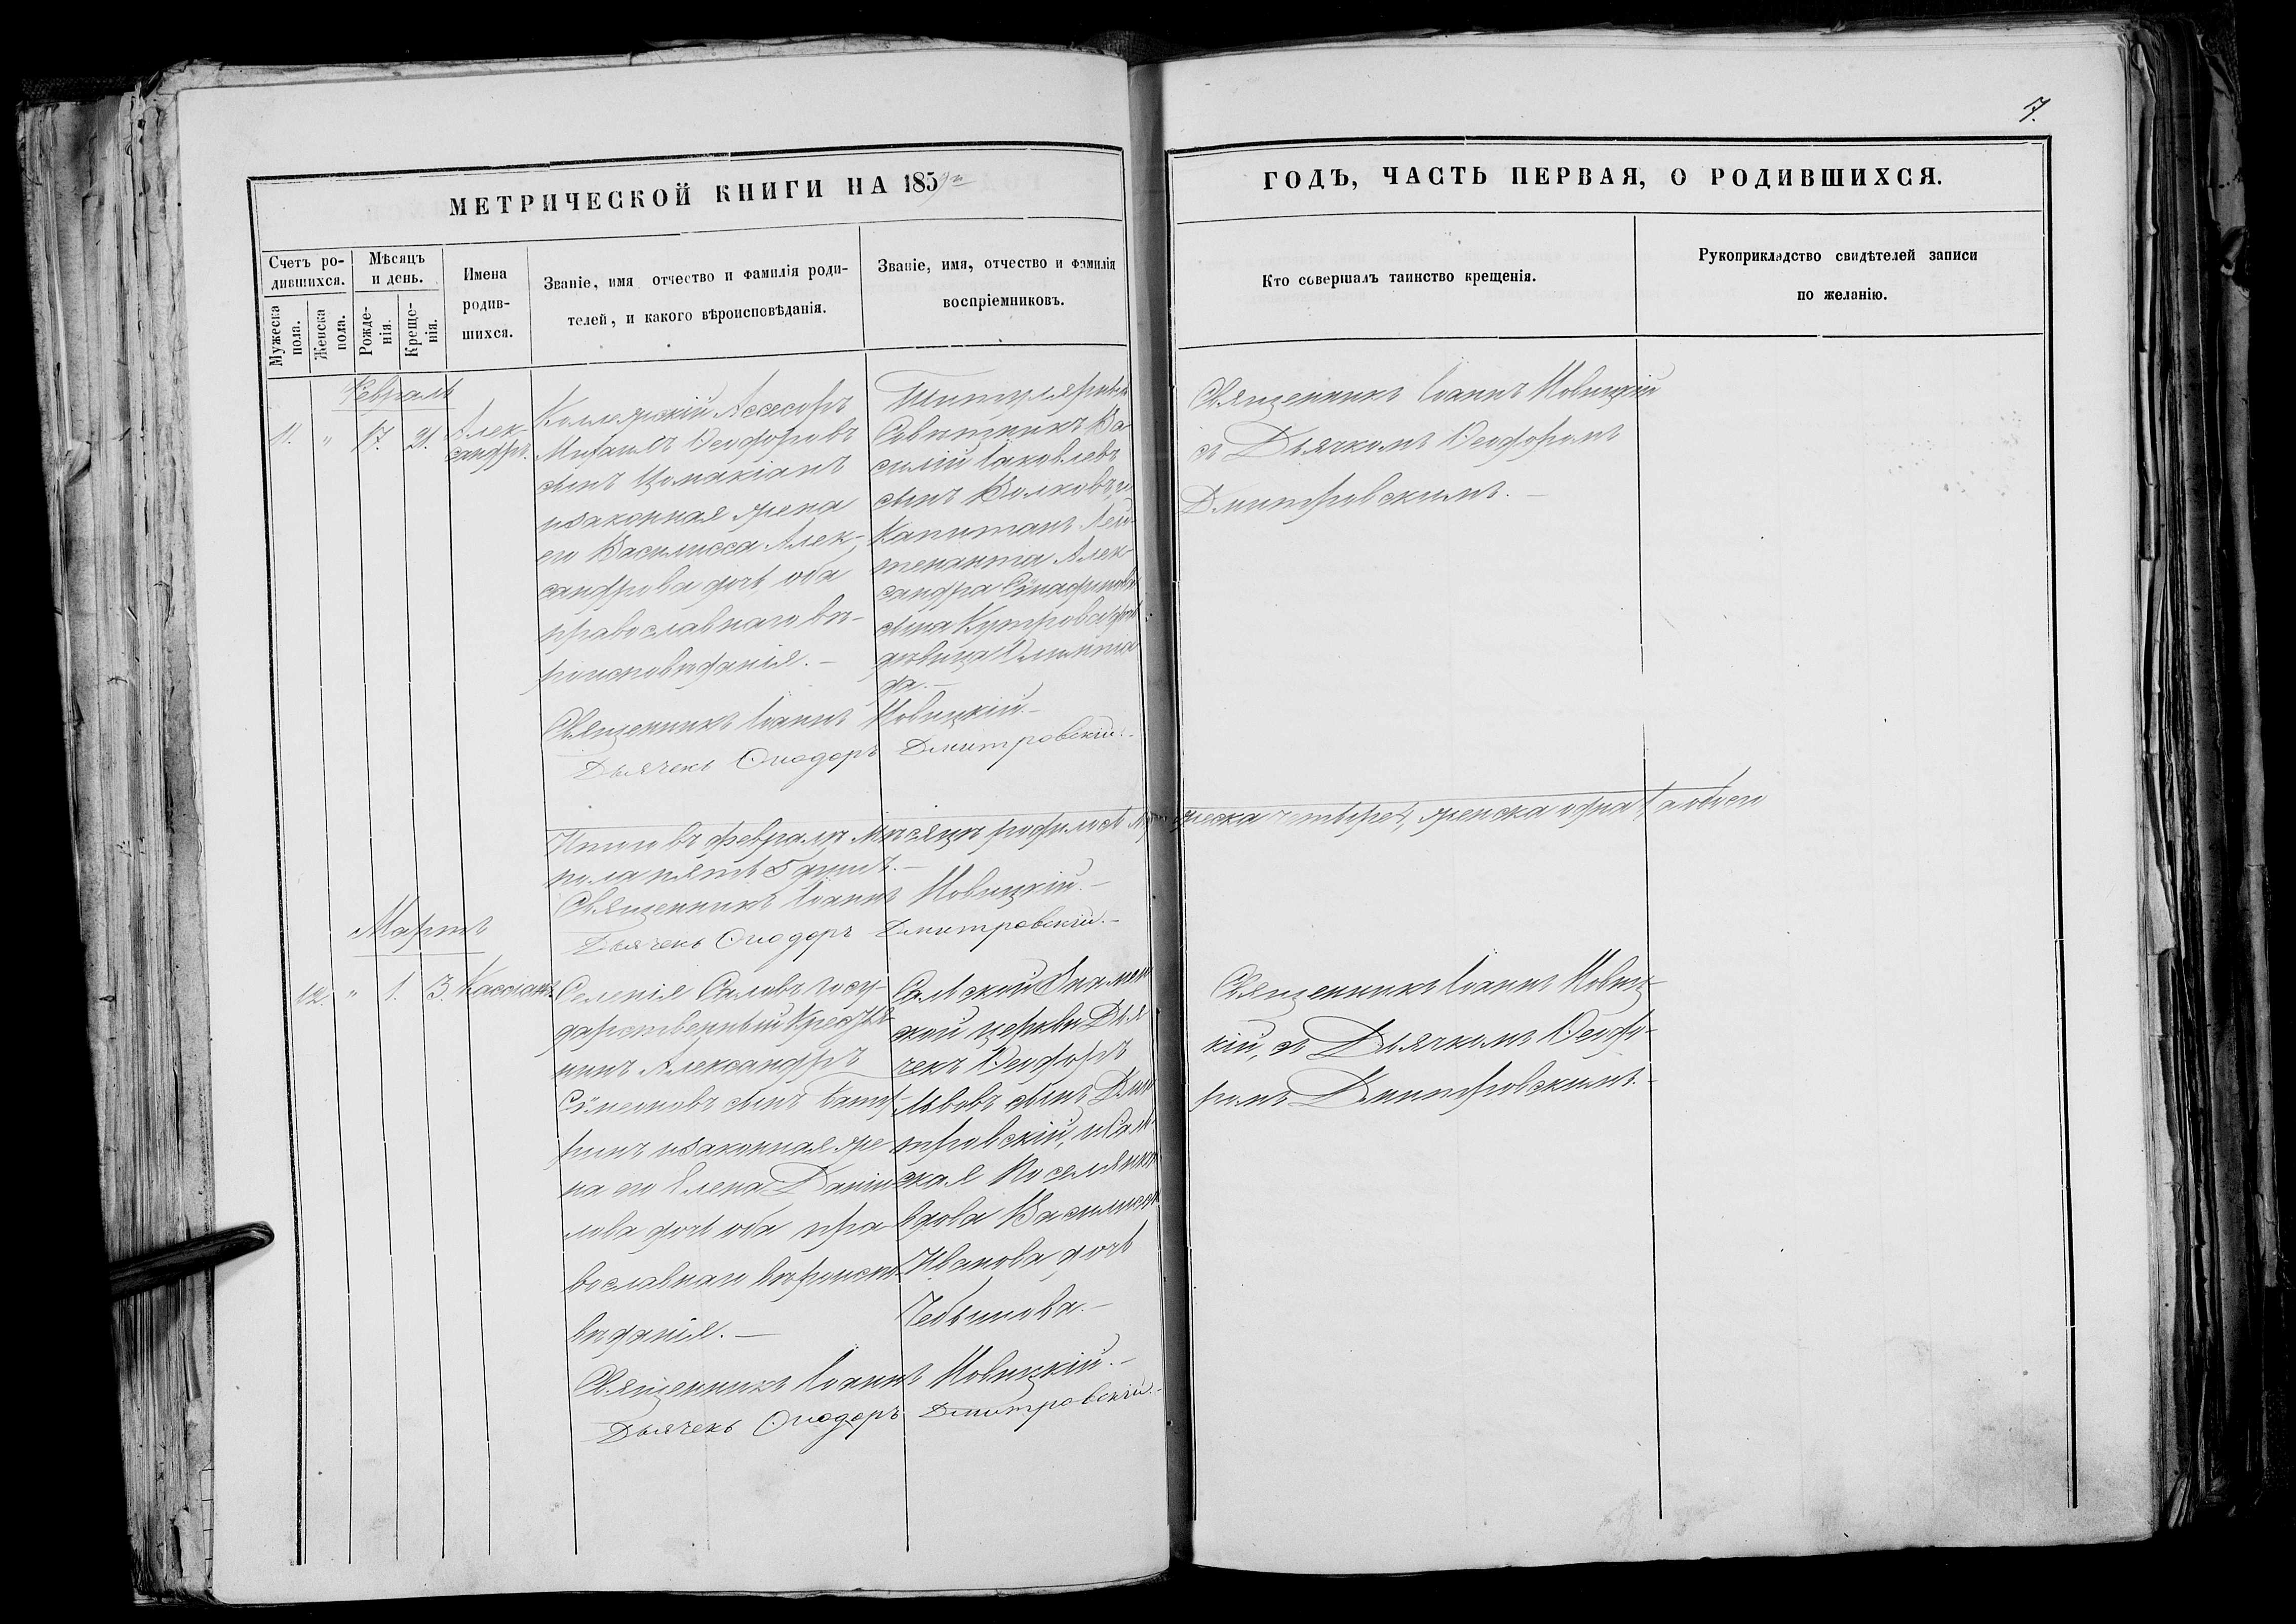 7.
МЕТРИЧЕСКОЙ КНИГИ НА 1859й
ГОДЪ, ЧАСТЬ ПЕРВАЯ, О РОДИВШИХСЯ.
Счетъ ро-
дившихся.
Мужеска
пола.
Женска
пола.
Мѣсяцъ
и день.
Рожде-
нія.
Креще-
нія.
Имена
родив-
шихся.
Званіе, имя отчество и фамилія роди-
телей, и какого вѣроисповѣданія.
Званіе, имя, отчество и фамилія
воспріемниковъ.
Кто совершалъ таинство крещенія.
Рукоприкладство свидѣтелей записи
по желанію.
Февраль
11. " 17. 21.
Алек-
сандръ.
Коллежскій Ассесоръ
Михаилъ Ѳеодоровъ
сынъ Цомакіанъ
и законная жена
его Василисса Алек-
сандрова дочь, оба
православнаго вѣ-
роисповѣданія.-
Титулярный
Совѣтникъ Ва-
силій Іаковлевъ
сынъ Волковъ, и
Капитанъ Лей-
тенанта Алек-
сандра
сына дочь
дѣвица Олимпіа-
да.-
Священникъ Іоаннъ Новицкій
съ Дьячкомъ Ѳеодоромъ
Дмитровскимъ.-
Священникъ Іоаннъ Новицкій.-
Дьячекъ Ѳеодоръ Дмитровскій.-
Итого въ февралѣ мѣсяцѣ родилось мужеска четыре 4, женска одна 1, а обоего
пола пять 5 душъ.-
Священникъ Іоаннъ Новицкій.-
Дьячекъ Ѳеодоръ Дмитровскій.-
Мартъ
12. " 1. 3. Кассіанъ.
Селенія Саловъ Госу-
дарственный Крестья-
нинъ Александръ
Сѵмеоновъ сынъ
и законная же-
на его Елена Даніи-
лова дочь оба пра-
вославнаго вѣроиспо-
вѣданія.-
церкви Дья-
чекъ Ѳеодоръ
Львовъ сынъ Дми-
тровскій, и
Поселянка
вдова Василисса
Иванова дочь
Священникъ Іоаннъ Новиц-
кій, съ Дьячкомъ Ѳеодо-
ромъ Дмитровскимъ.-
Священникъ Іоаннъ Новицкій.-
Дьячекъ Ѳеодоръ Дмитровскій.-